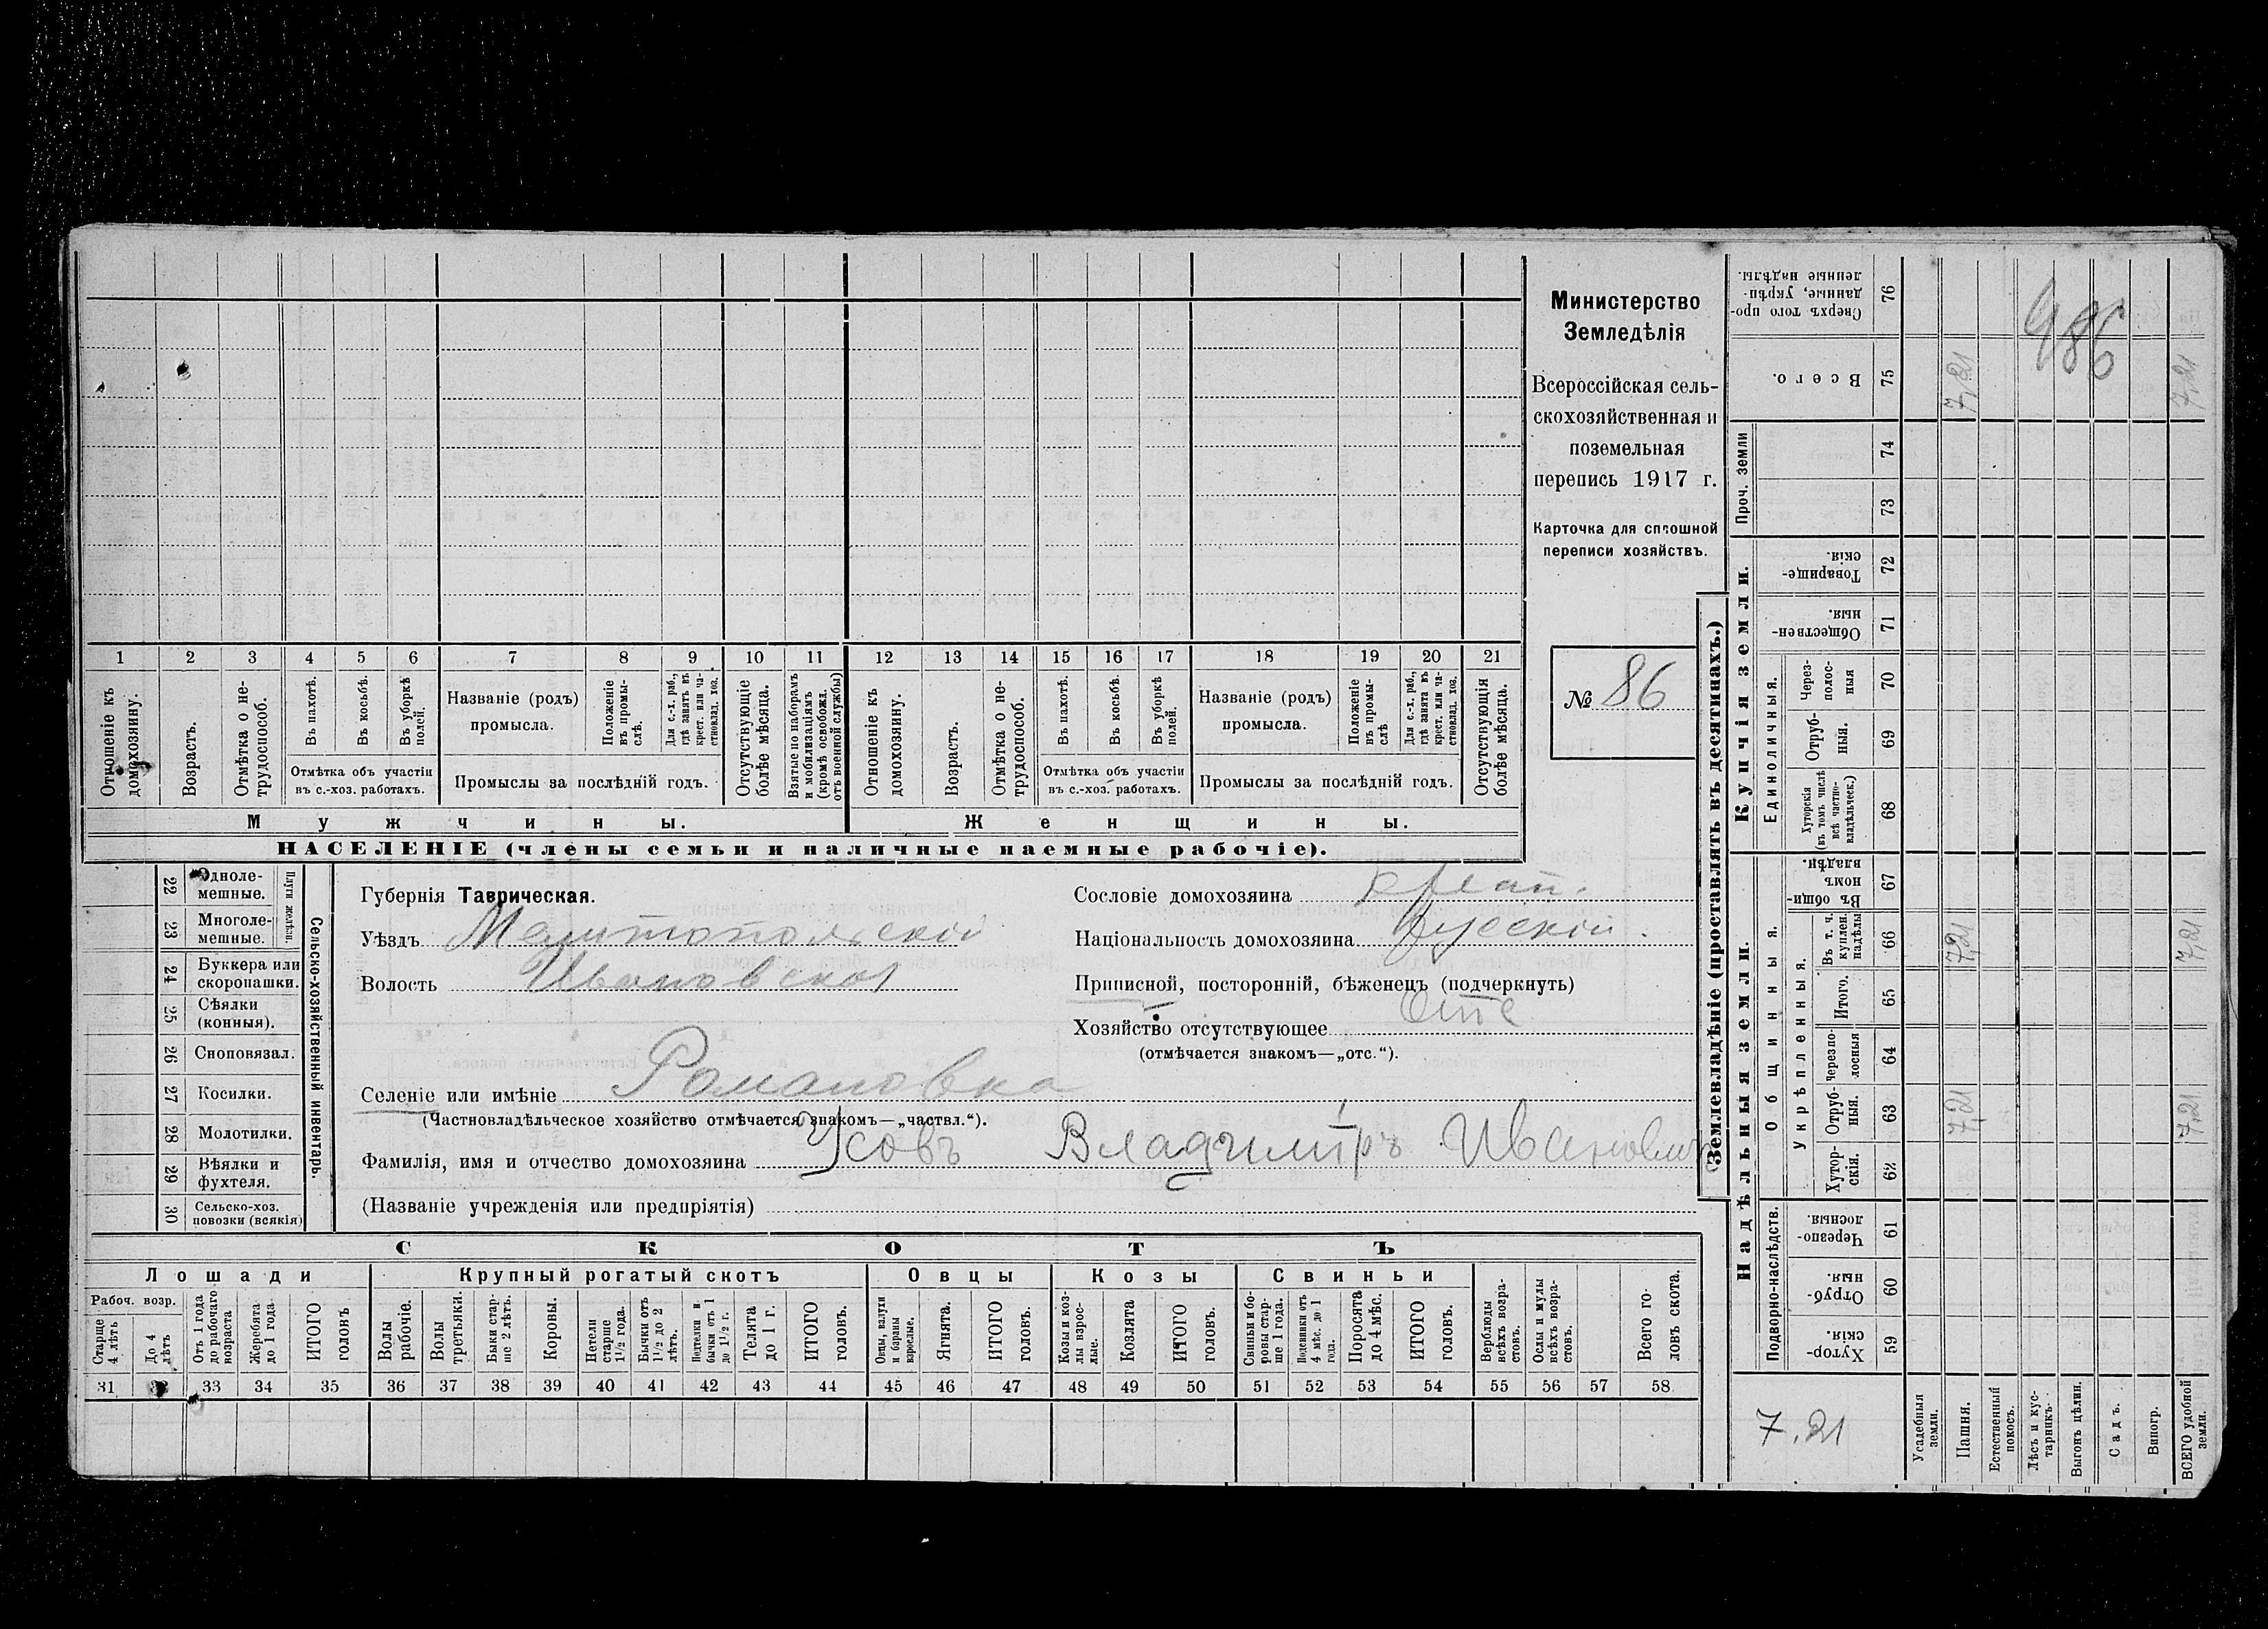 Министерство
Земледѣлія
Всероссійская сель-
скохозяйственная и
поземельная
перепись 1917 г.
Карточка для сплошной
переписи хозяйствъ.
№ 86
1 2 3 4 5 6 7 8 9 10 11 12 13 14 15 16 17 18 19 20 21
Отношеніе къ домохозяину.
Возрастъ.
Отмѣтка о не-трудоспособ.
Въ пахотѣ.
Въ косьбѣ.
Въ уборкѣ полей.
Отмѣтка объ участіи
въ с.-хоз. работахъ.
Названіе (родъ)
промысла.
Положеніе въ промы-слѣ.
Для с.-х. раб., гдѣ занятъ въ крест. или ча-стновлад. хоз.
Промыслы за послѣдній годъ.
Отсутствующіе болѣе мѣсяца.
Взятые по наборамъ и мобилизаціямъ (кромѣ освобожд. отъ военной службы)
Отношеніе къ домохозяину.
Возрастъ.
Отмѣтка о не-трудоспособ.
Въ пахотѣ.
Въ косьбѣ.
Въ уборкѣ полей.
Отмѣтка объ участіи
въ с.-хоз. работахъ.
Названіе (родъ)
промысла.
Положеніе въ промы-слѣ
Для с.-х. раб., гдѣ занята въ крест. или ча-стновлад. хоз.
Промыслы за послѣдній годъ.
Отсутствующія болѣе мѣсяца.
Мужчины. Женщины.
НАСЕЛЕНІЕ (члены семьи и наличные наемные рабочіе).
Сельско-хозяйственный инвентарь.
Плуги желѣзн.
22 Однолемешные.
23 Многолемешные.
24 Буккера или скоропашки.
25 Сѣялки (конныя).
26 Сноповязал.
27 Косилки.
28 Молотилки.
29 Вѣялки и фухтеля.
30 Сельско-хоз. повозки (всякія)
Губернія Таврическая.
Уѣздъ Мелитопольскій
Волость Ивановская
Селеніе или имѣніе Романовка
(Частновладѣльческое хозяйство отмѣчается знакомъ—„частвл.“).
Фамилія, имя и отчество домохозяина Усовъ Владимиръ Иванович
(Названіе учрежденія или предпріятія)
Сословіе домохозяина
Національность домохозяина Русскій.
Приписной, посторонній, бѣженецъ (подчеркнуть)
Хозяйство отсутствующее Отс
(отмѣчается знакомъ—„отс.“).
СКОТЪ
Лошади Крупный рогатый скотъ Овцы Козы Свиньи
Рабоч. возр.
Старше 4 лѣтъ
До 4 лѣтъ
Отъ 1 года до рабочаго возраста
Жеребята до 1 года.
ИТОГО головъ
Волы рабочіе.
Волы третьяки.
Быки стар-ше 2 лѣтъ.
Коровы.
Нетели старше 1 1/2 года.
Бычки отъ 1 1/2 до 2 лѣтъ.
Подтелки и бычки отъ 1 до 1 1/2 г.
Телята до 1 г.
ИТОГО головъ.
Овцы, валухи и бараны взрослые.
Ягнята.
ИТОГО головъ.
Козы и коз-лы взрос-лые.
Козлята
ИТОГО головъ.
Свиньи и бо-ровы стар-ше 1 года.
Подсвинки отъ 4 мѣс. до 1 года.
Поросята до 4 мѣс.
ИТОГО головъ.
Верблюды всѣхъ возра-стовъ.
Ослы и мулы всѣхъ возра-стовъ.
Всего го-ловъ скота.
31 33 34 35 36 37 38 39 40 41 42 43 44 45 46 47 48 49 50 51 52 53 54 55 56 57 58
Землевладѣніе (проставлять въ десятинахъ.)
Надѣльныя земли.
Купчія земли.
Проч. земли
Подворно-наслѣдств.
Общинныя.
Укрѣпленныя.
Единоличныя.
Сверхъ того про-данные, укрѣп-ленные надѣлы. 76
Всего. 75 7,21 7,21
486
74
73
Товарище-скія. 72
Обществен-ныя. 71
Через-полос-ныя 70
Отруб-ныя. 69
Хуторскія (въ томъ числѣ всѣ частно-владѣльческ.) 68
Въ общин-номъ владѣн. 67
Въ т. ч. куплен. надѣлы 66 7,21 7,21
Итого. 65
Черезпо-лосныя 64
Отруб-ныя. 63 7,21 7,21
Хутор-скія. 62
Черезпо-лосныя 61
Отруб-ныя. 60
Хутор-скія. 59
7.21
Усадебныя земли.
Пашня.
Естественный покосъ.
Лѣсъ и кус-тарникъ.
Выгонъ цѣлин.
Садъ.
Виногр.
ВСЕГО удобной земли.